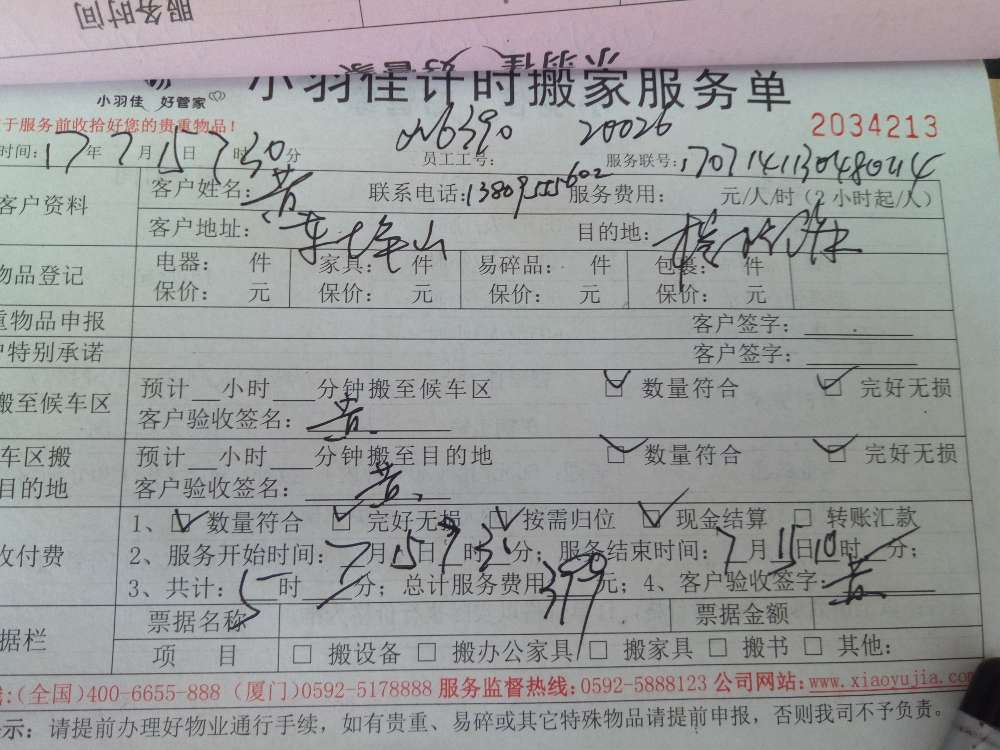 服务时间
小羽佳 好管家
小羽佳 好管家
小羽佳计时搬家服务单
于服务前收拾好您的贵重物品！
2034213
时间：17年7月15日7时30分 员工工号： 6390 20026 服务联号：170714113048044
客户资料 客户姓名：黄 联系电话：13809555602 服务费用： 元/人/时（2小时起/人）
客户地址： 目的地：
物品登记 电器： 件 家具： 件 易碎品： 件 包裹： 件
保价： 元 保价： 元 保价： 元 保价： 元
重物品申报 客户签字：
户特别承诺 客户签字：
搬至候车区 预计__小时___分钟搬至候车区 ☑ 数量符合 ☑ 完好无损
客户验收签名：黄
车区搬目的地 预计__小时___分钟搬至目的地 ☑ 数量符合 ☑ 完好无损
客户验收签名：黄
收付费 1、☑ 数量符合 ☑ 完好无损 ☑ 按需归位 ☑ 现金结算 □ 转账汇款
2、服务开始时间：7月15日7时3 分；服务结束时间：7月15日10时 分；
3、共计： 时 分；总计服务费用399元；4、客户验收签字：黄
据栏 票据名称 票据金额
项 目 □ 搬设备 □ 搬办公家具 □ 搬家具 □ 搬书 □ 其他：
：(全国)400-6655-888（厦门)0592-5178888 服务监督热线：0592-5888123 公司网站：www.xiaoyujia.com
示：请提前办理好物业通行手续，如有贵重、易碎或其它特殊物品请提前申报，否则我司不予负责。